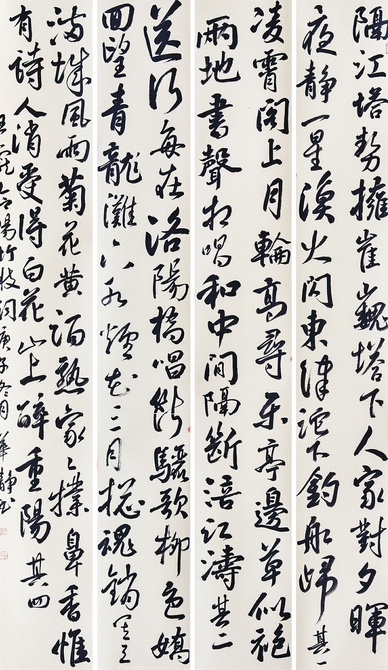 隔江塔勢擁崔巍塔下人家對夕暉
夜靜一星漁火閃東津沱下釣船歸 其
凌霄閣上月輪高尋乐亭邊草似袍
兩地書聲相唱和中間隔斷涪江濤 其二
送行每在洛陽橋唱斷驪歌柳色嬌
回望青龍灘下水煙花三月總魂銷 其三
满城風雨菊花黄酒熟家々撲鼻香惟
有詩人消受得白花山上醉重陽 其四
陽竹枝詞庚子冬月華靜書